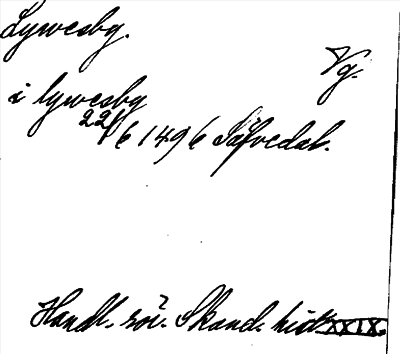 Lywesbg.
Vg.
i lywesbg
22/6 1496 Säfvedal.
Handl. rör. Skand. hist. XXIX.